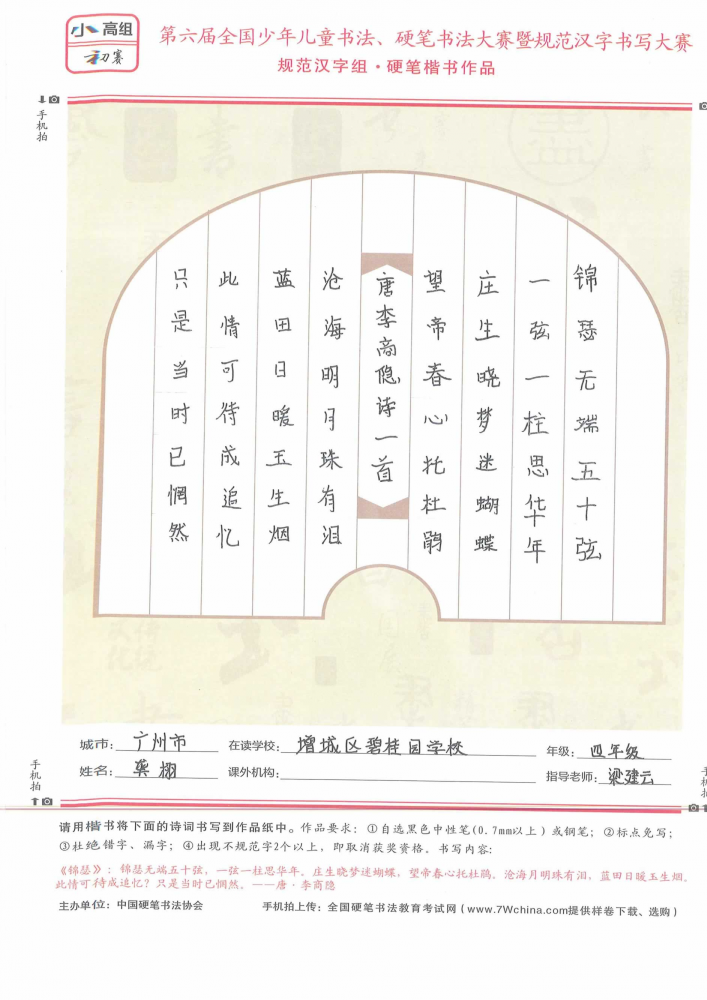 小高组
初赛
第六届全国少年儿童书法、硬笔书法大赛暨规范汉字书写大赛
规范汉字组·硬笔楷书作品
手机拍
锦瑟无端五十弦
一弦一柱思华年
庄生晓梦迷蝴蝶
望帝春心托杜鹃
唐李商隐诗一首
沧海明月珠有泪
蓝田日暖玉生烟
此情可待成追忆
只是当时已惘然
城市：广州市 在读学校：增城区碧桂园学校 年级：四年级
姓名：龚栩 课外机构： 指导老师：梁建云
手机拍
手机拍
请用楷书将下面的诗词书写到作品纸中。作品要求：①自选黑色中性笔(0.7mm以上)或钢笔；②标点免写；
③杜绝错字、漏字；④出现不规范字2个以上，即取消获奖资格。书写内容：
《锦瑟》：锦瑟无端五十弦，一弦一柱思华年。庄生晓梦迷蝴蝶，望帝春心托杜鹃。沧海月明珠有泪，蓝田日暖玉生烟。
此情可待成追忆？只是当时已惘然。——唐·李商隐
主办单位：中国硬笔书法协会 手机拍上传：全国硬笔书法教育考试网(www.7Wchina.com提供样卷下载、选购)